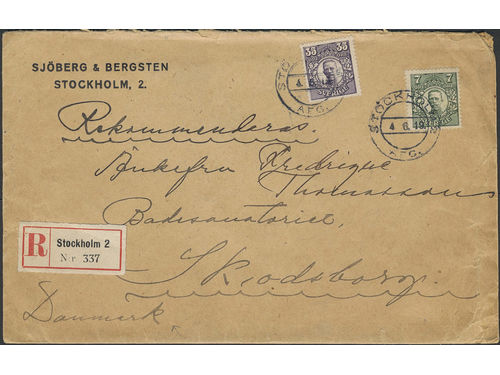 SJÖBERG & BERGSTEN
STOCKHOLM, 2.
35 35
SVERIGE
STO
4.
AFG.
7
STOCKHOLM
4 6 19
AFG.
Rekommenderas.
Änkefru Fredrique
Thomassons
Badesanatoriet,
Skodsborg.
Danmark
R
Stockholm 2
Nr 337